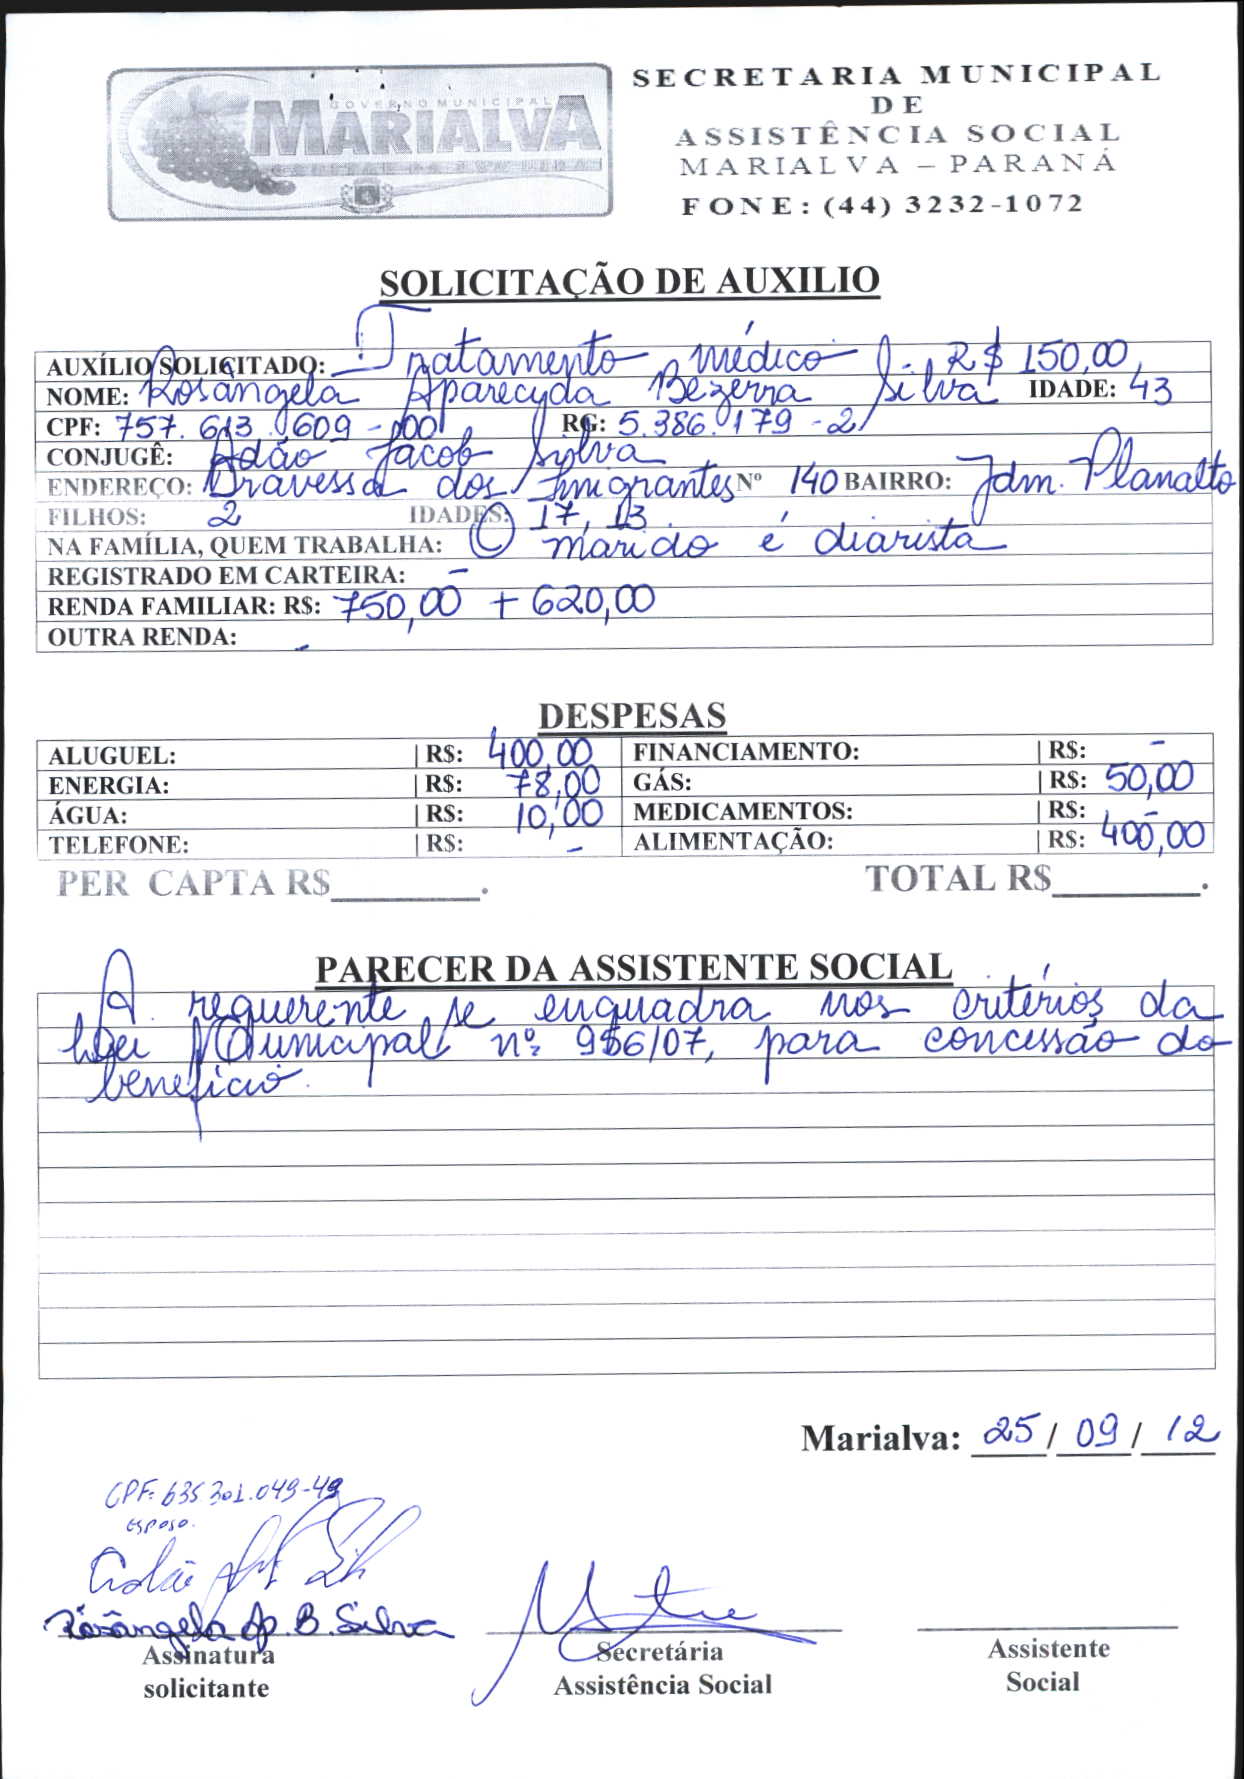 GOVERNO MUNICIPAL
MARIALVA
SECRETARIA MUNICIPAL
DE
ASSISTÊNCIA SOCIAL
MARIALVA – PARANÁ
FONE: (44) 3232-1072
SOLICITAÇÃO DE AUXILIO
AUXÍLIO SOLICITADO: Tratamento médico - R$ 150,00
NOME: Rosângela Aparecyda Bezerra Silva IDADE: 43
CPF: 757.613.609-00 RG: 5.386.179-2
CONJUGÊ: Adão Jacob Silva
ENDEREÇO: Travessa dos Imigrantes Nº 140 BAIRRO: Jdm. Planalto
FILHOS: 2 IDADES: 17, 13.
NA FAMÍLIA, QUEM TRABALHA: O marido é diarista
REGISTRADO EM CARTEIRA: -
RENDA FAMILIAR: R$: 750,00 + 620,00
OUTRA RENDA: -
DESPESAS
ALUGUEL: | R$: 400,00 FINANCIAMENTO: | R$: -
ENERGIA: | R$: 78,00 GÁS: | R$: 50,00
ÁGUA: | R$: 10,00 MEDICAMENTOS: | R$: -
TELEFONE: | R$: - ALIMENTAÇÃO: | R$: 400,00
PER CAPTA R$________. TOTAL R$________.
PARECER DA ASSISTENTE SOCIAL
A requerente se enquadra nos critérios da
Lei Municipal nº 956/07, para concessão do
benefício.
Marialva: 25/09/12
CPF: 635.301.049-49
esposo.
Rosângela Ap. B. Silva
Assinatura
solicitante
Secretária
Assistência Social
Assistente
Social